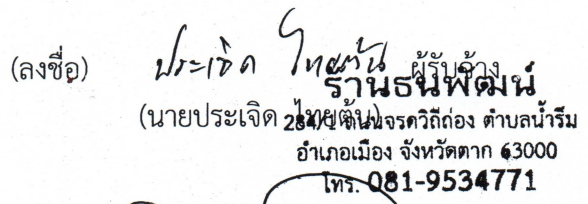 (ลงชื่อ) ประเจิด ไทยต้น ผู้รับจ้าง
ร้านธนพัฒน์
(นายประเจิด ไทยต้น)
284/1 ถนนจรดวิถีถ่อง ตำบลน้ำรึม
อำเภอเมือง จังหวัดตาก 63000
โทร. 081-9534771